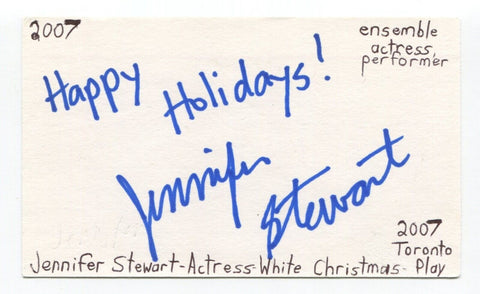 2007
ensemble
actress,
performer
Happy Holidays!
Jennifer Stewart
2007
Toronto
Jennifer Stewart-Actress-White Christmas- Play